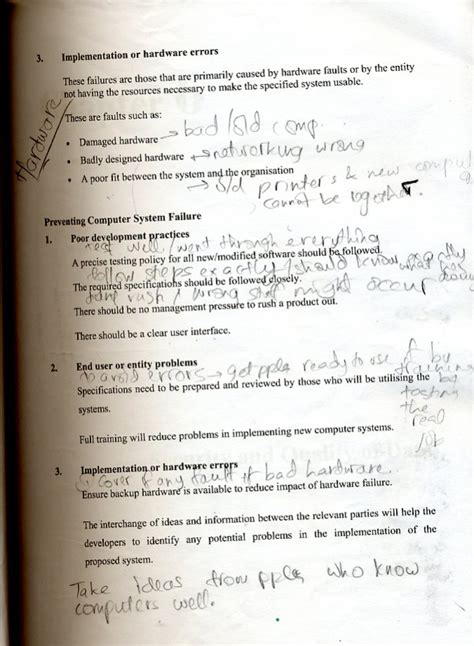 3. Implementation or hardware errors
These failures are those that are primarily caused by hardware faults or by the entity
not having the resources necessary to make the specified system usable.
Hardware
These are faults such as:
• Damaged hardware → bad/old comp.
• Badly designed hardware → networking wrong
• A poor fit between the system and the organisation
→ old printers & new comput
cannot be together.
Preventing Computer System Failure
1. Poor development practices
test well/went through everything
A precise testing policy for all new/modified software should be followed.
follow steps exactly/should know exactly what has
The required specifications should be followed closely.
dont rush/wrong stuff might occur
There should be no management pressure to rush a product out.
There should be a clear user interface.
2. End user or entity problems
to avoid errors → get ppls ready to use it by training
Specifications need to be prepared and reviewed by those who will be utilising the
by testing the real job
systems.
Full training will reduce problems in implementing new computer systems.
3. Implementation or hardware errors
Cover if any fault if bad hardware.
Ensure backup hardware is available to reduce impact of hardware failure.
The interchange of ideas and information between the relevant parties will help the
developers to identify any potential problems in the implementation of the
proposed system.
Take ideas from ppls who know
computers well.